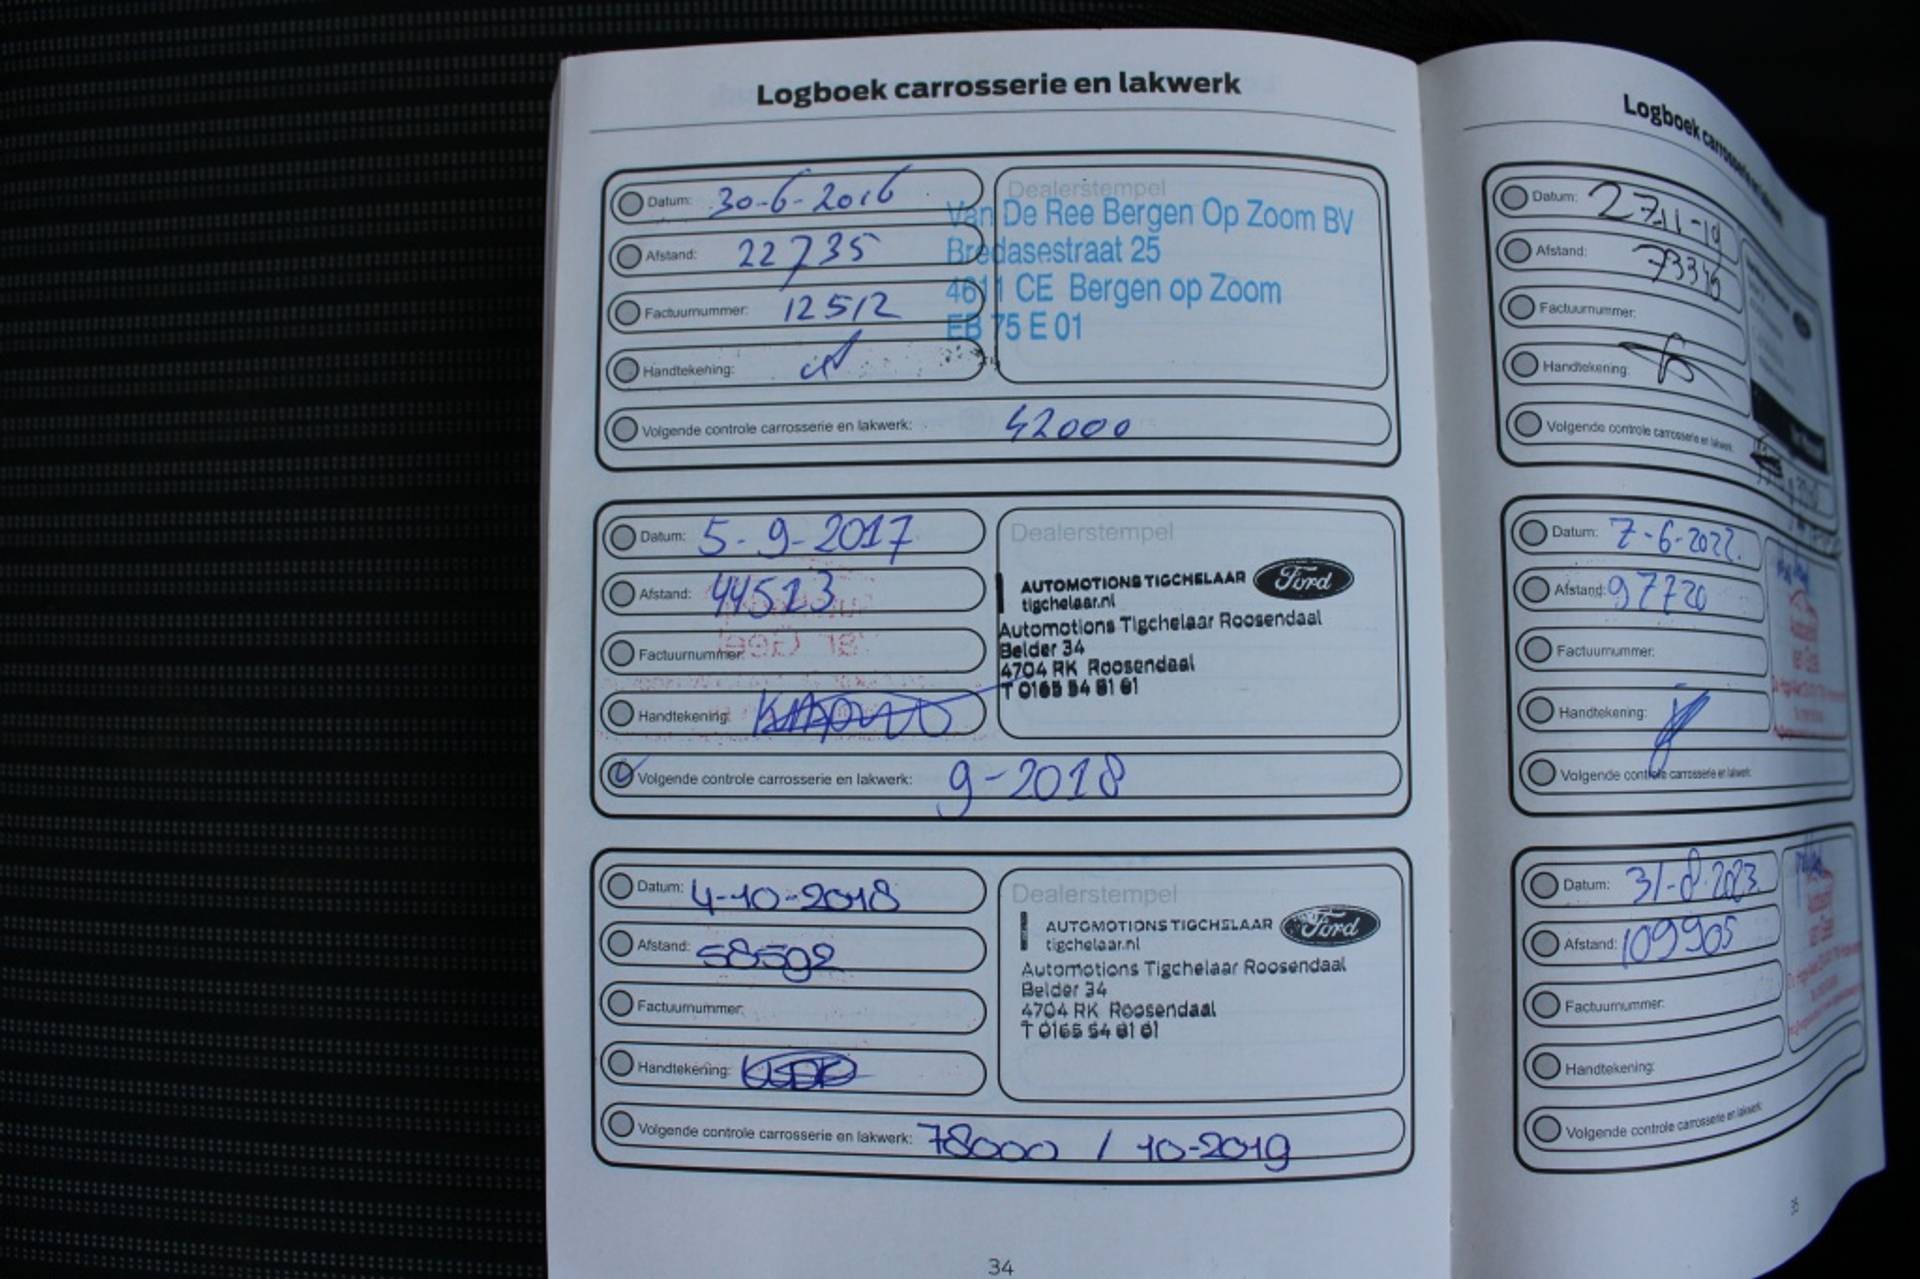 Logboek carrosserie en lakwerk
Datum: 30-6-2016
Afstand: 22735
Factuurnummer: 12512
Handtekening:
Dealerstempel
Van De Ree Bergen Op Zoom BV
Bredasestraat 25
4611 CE Bergen op Zoom
EB 75 E 01
Volgende controle carrosserie en lakwerk: 42000
Datum: 5-9-2017
Afstand: 44513
Factuurnummer:
Handtekening:
Dealerstempel
AUTOMOTIONS TIGCHELAAR Ford
tigchelaar.nl
Automotions Tigchelaar Roosendaal
Belder 34
4704 RK Roosendaal
T 0165 54 81 61
Volgende controle carrosserie en lakwerk: 9-2018
Datum: 4-10-2018
Afstand: 58592
Factuurnummer:
Handtekening:
Dealerstempel
AUTOMOTIONS TIGCHELAAR Ford
tigchelaar.nl
Automotions Tigchelaar Roosendaal
Belder 34
4704 RK Roosendaal
T 0165 54 81 61
Volgende controle carrosserie en lakwerk: 78000 / 10-2019
34
Logboek carrosserie en
Datum: 27-11-19
Afstand: 73345
Factuurnummer:
Handtekening:
Volgende controle carrosserie en lakwerk:
Datum: 7-6-2022.
Afstand: 97720
Factuurnummer:
Handtekening:
Volgende controle carrosserie en lakwerk:
Datum: 31-8-2023
Afstand: 109905
Factuurnummer:
Handtekening:
Volgende controle carrosserie en lakwerk:
35